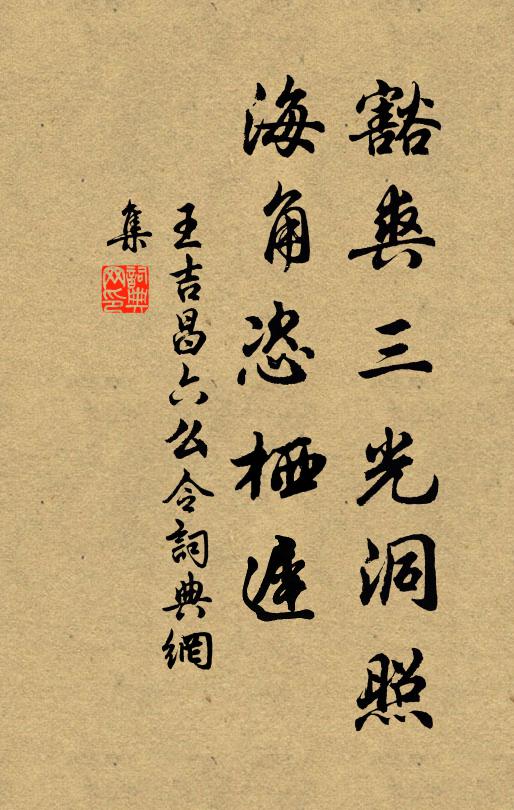 豁爽三光洞照
海角恣栖遲
王吉昌六么令詞典網
集
詞典
网印